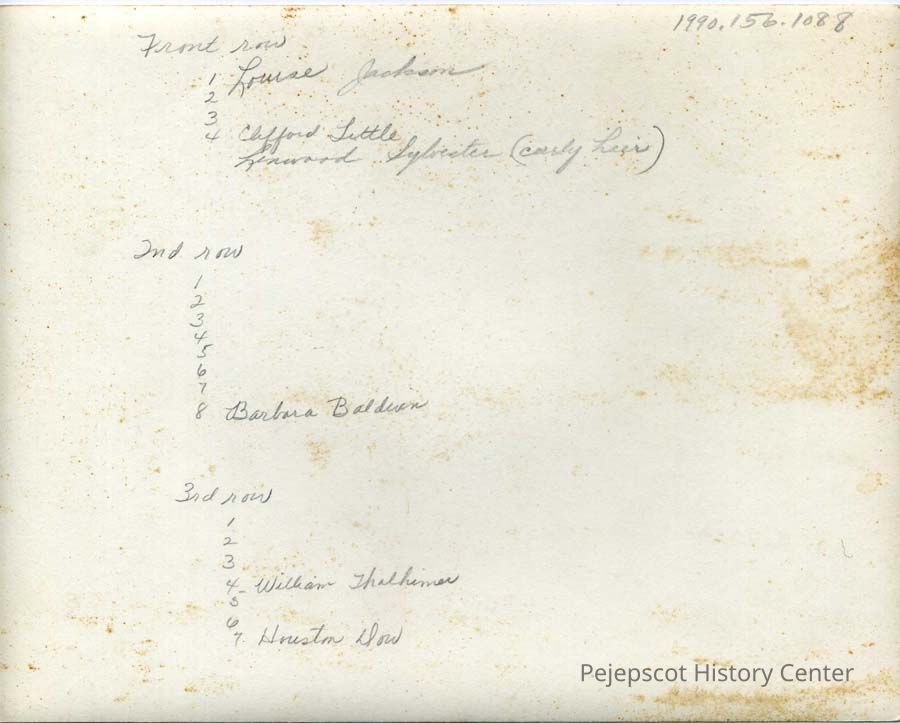 1990.156.1088
Front row
1 Louise Jackson
2
3
4 Clifford Little
Linwood Sylvester (curly hair)
2nd row
1
2
3
4
5
6
7
8 Barbara Baldwin
3rd row
1
2
3
4- William Thalhimer
5
6
7. Houston Dow
Pejepscot History Center